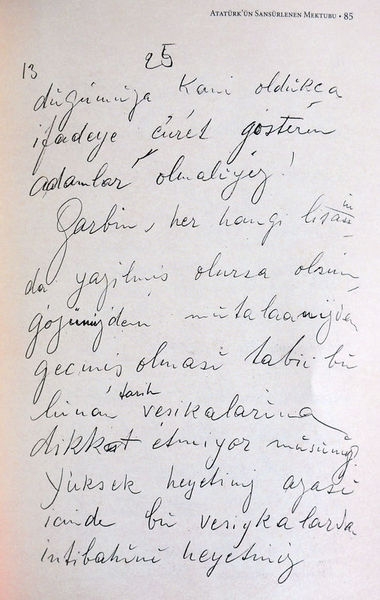 ATATÜRK'ÜN SANSÜRLENEN MEKTUBU • 85
13
25
düğümüza kani oldukca
ifadeye cüret gösteren
adamlar olmaliyiz!
Garbin, her hangi lisanin
da yazilmis olursa olsun
gözünüzden mütalaanizdan
gecmis olmasi tabii bu
lunan tarih vesikalarina
dikkat etmiyor musunuz
Yüksek heyetiniz azasi
icinde bu vesiykalarda
intibahini heyetiniz